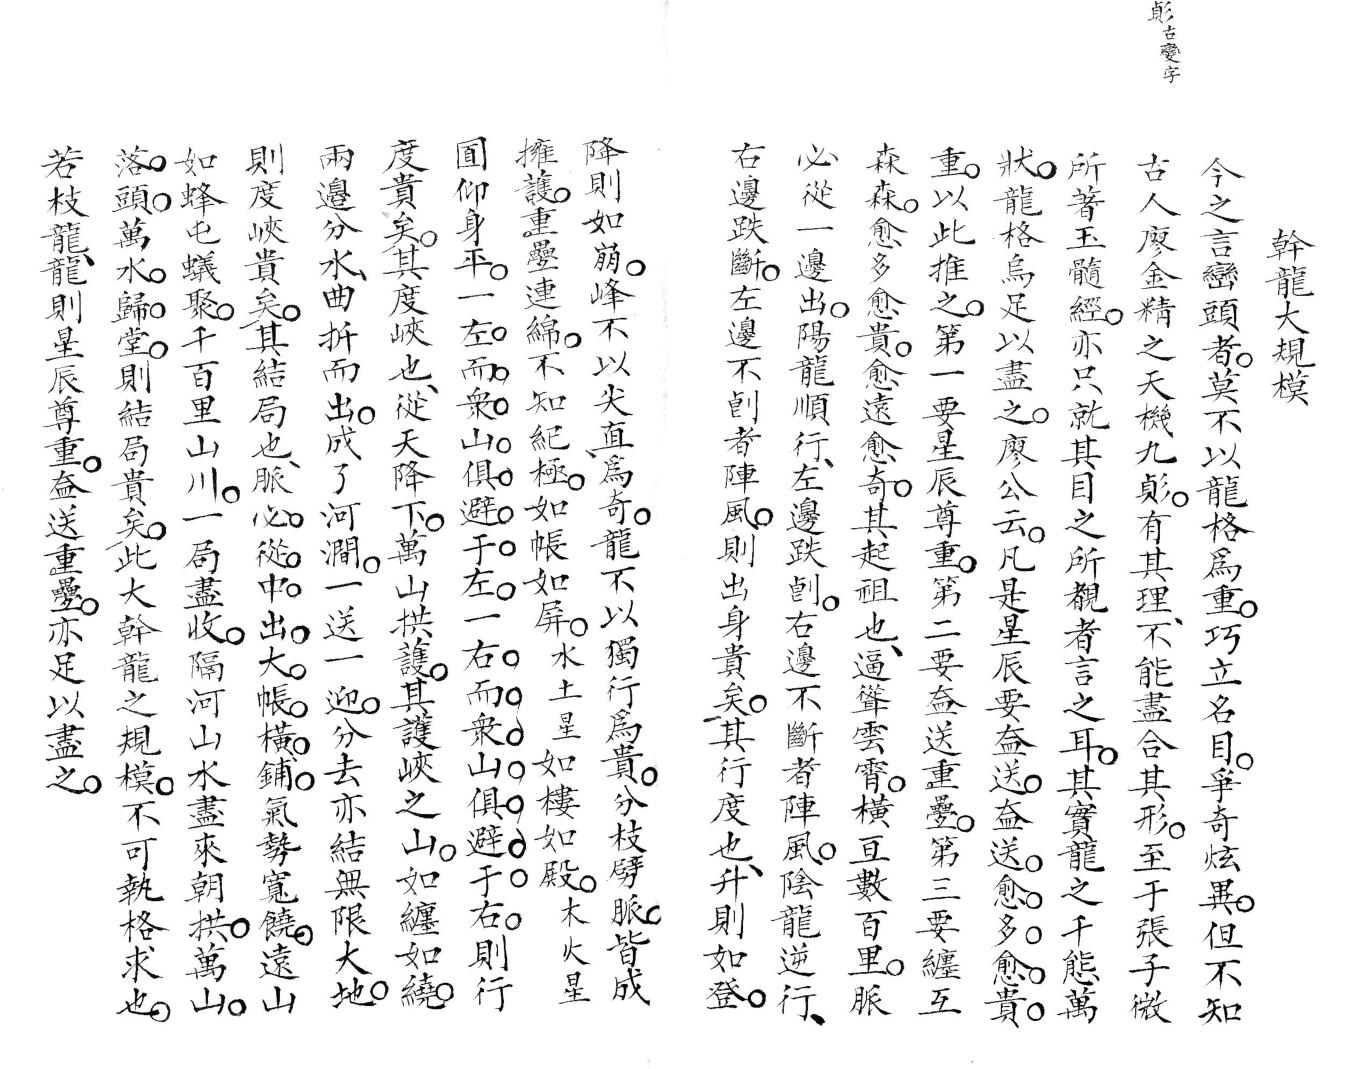 㣐古變字
幹龍大規模
今之言巒頭者。莫不以龍格爲重。巧立名目。爭奇炫異。但不知
古人廖金精之天機九㣐。有其理、不能盡合其形。至于張子微
所著玉髓經。亦只就其目之所覩者言之耳。其實龍之千態萬
狀。龍格烏足以盡之。廖公云。凡是星辰要益送。益送愈多愈貴
重。以此推之。第一要星辰尊重。第二要益送重疊。第三要纏互
森森。愈多愈貴。愈遠愈奇。其起祖也、逼聳雲霄。橫亘數百里。脈
必從一邊出。陽龍順行、左邊跌㓰。右邊不斷者陣風。陰龍逆行、
右邊跌斷。左邊不㓰者陣風。則出身貴矣。其行度也、升則如登。
降則如崩。峰不以尖直、爲奇。龍不以獨行爲貴。分枝劈脈。皆成
擁護。重疊連綿。不知紀極。如帳如屏。水土星如樓如殿。木火星
圓仰身平。一左而衆山俱避于左。一右而衆山俱避于右。則行
度貴矣。其度峽也、從天降下。萬山拱護。其護峽之山。如纏如繞。
兩邊分水、曲折而出。成了河澗。一送一迎。分去亦結無限大地。
則度峽貴矣。其結局也、脈必從中出大帳。橫鋪。氣勢寬饒。遠山
如蜂屯蟻聚。千百里山川。一局盡收。隔河山水盡來朝拱。萬山。
落頭。萬水歸堂。則結局貴矣。此大幹龍之規模。不可執格求也。
若枝龍、龍則星辰尊重。益送重疊。亦足以盡之。